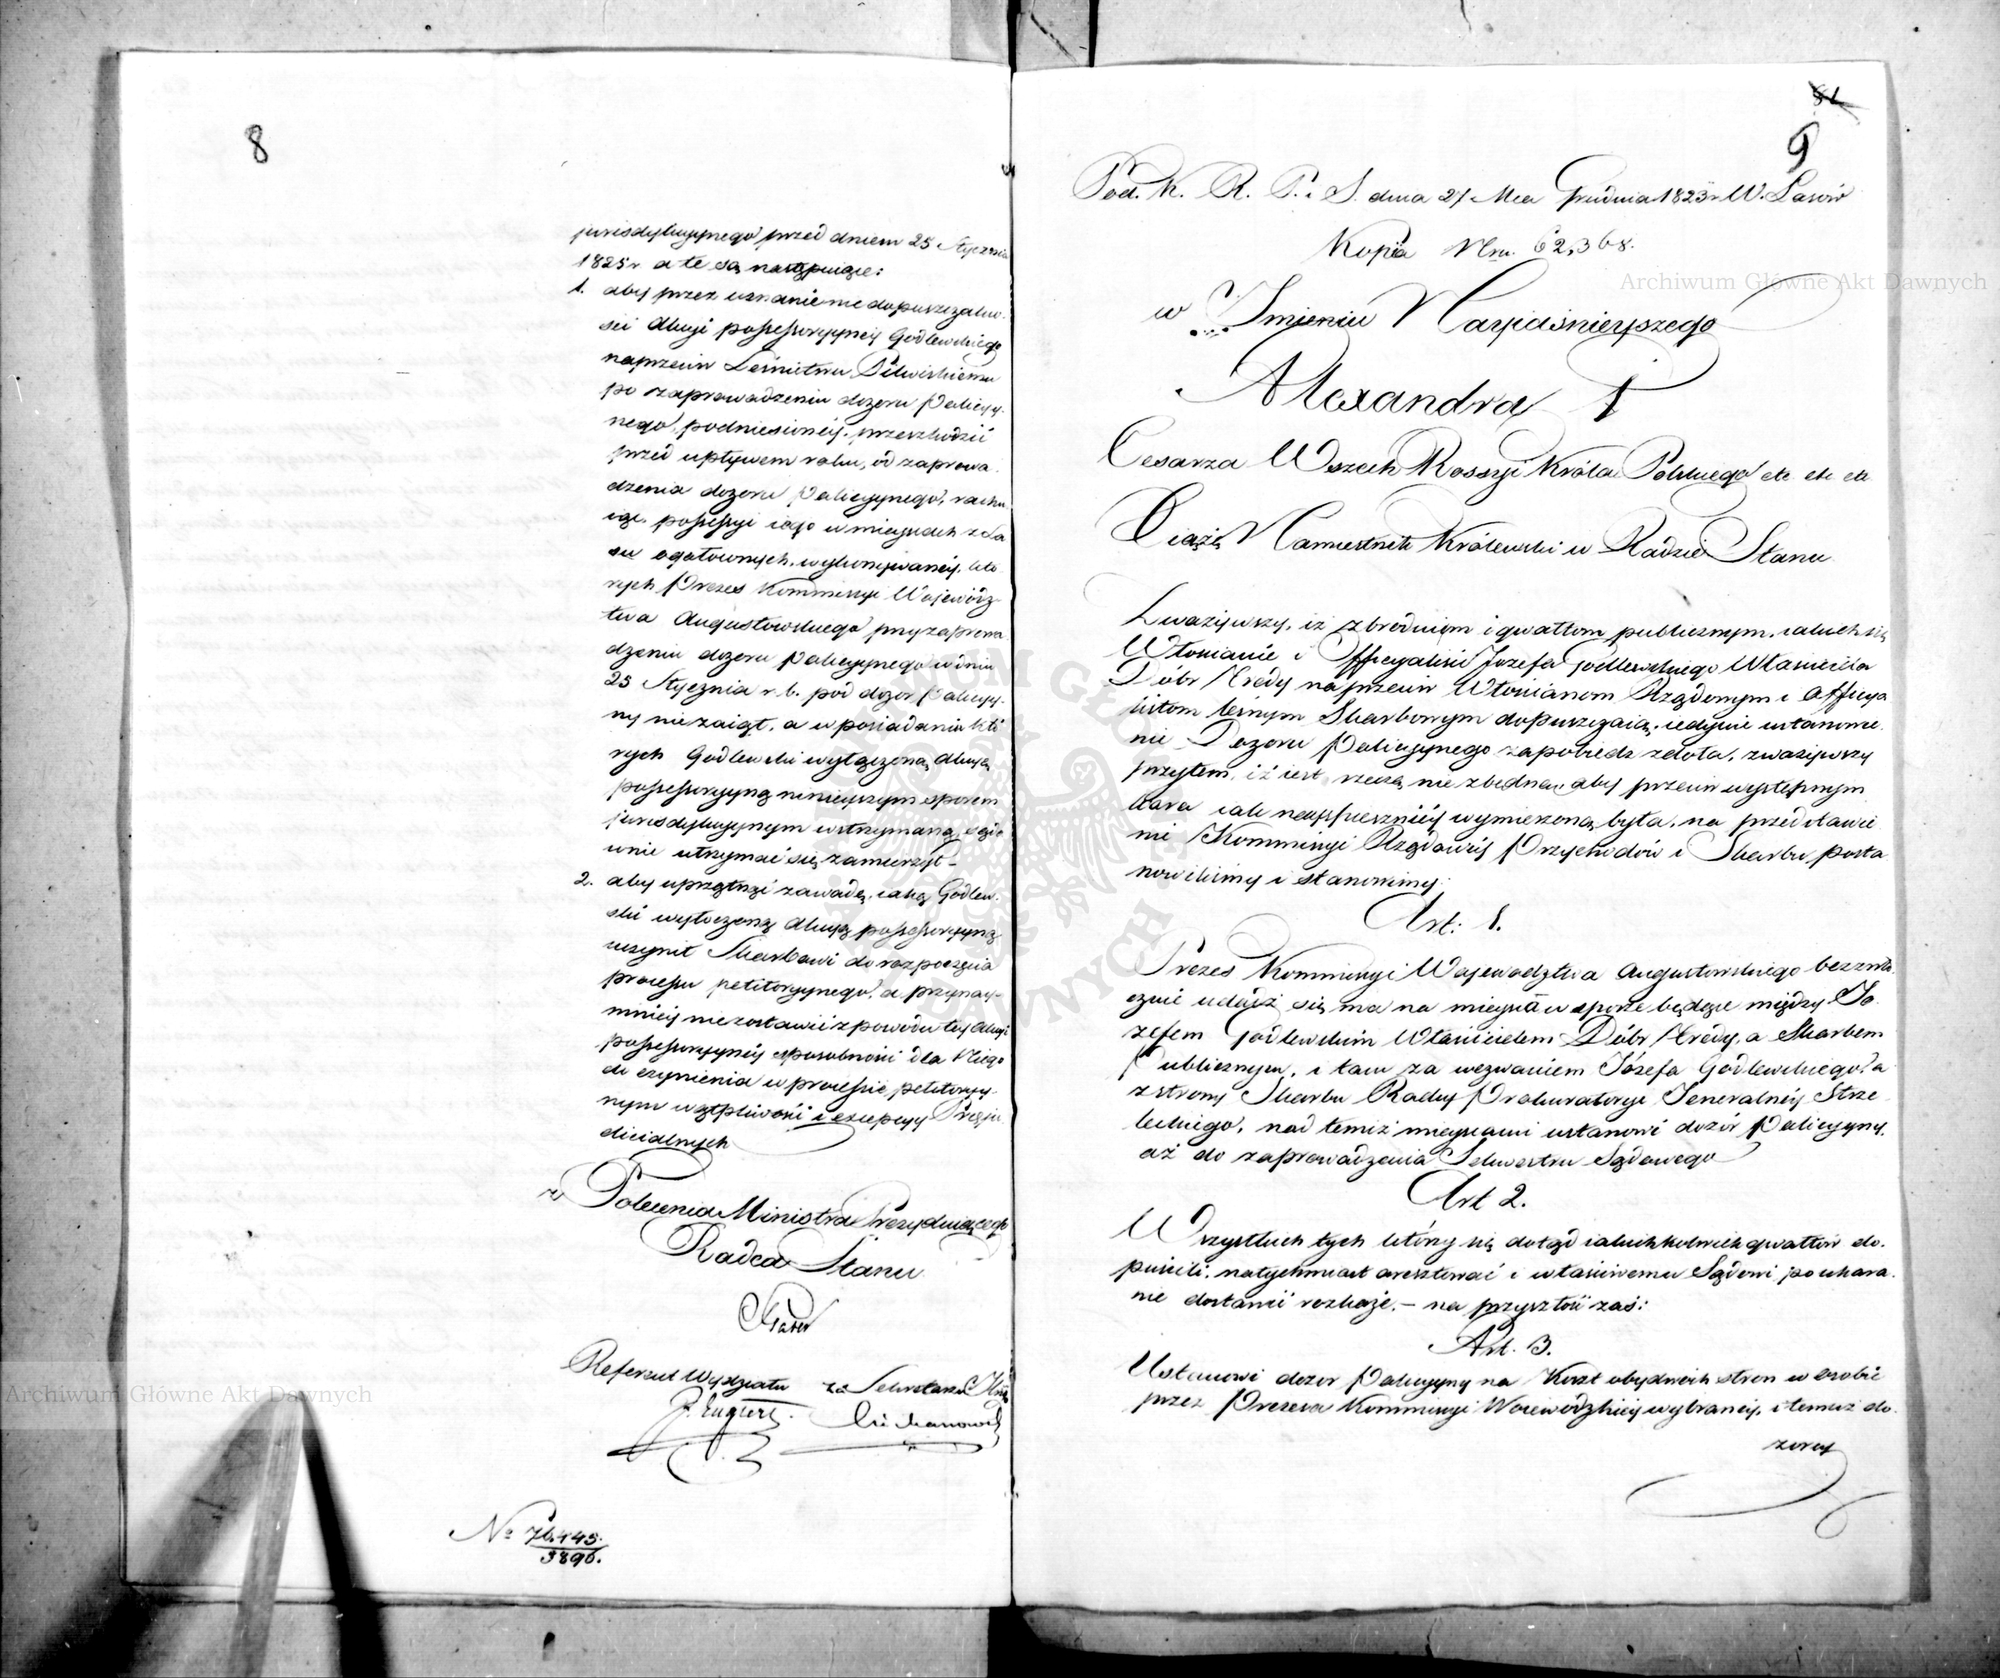 8
jurisdykcyynego przed dniem 25 Stycznia
1825 r a te są następuiące:
1. aby przez uznanie niedopuszczalno-
ści Akcyi possessoryyney Godlewskiego
naprzeciw Leśnictwu Pilwiskiemu
po zaprowadzeniu dozoru Policyy-
nego, podniesioney, przeszkodzić
przed upływem roku, od zaprowa-
dzenia dozoru Policyynego, rachu-
iąc, possessyi iego w mieyscach z La-
su ogołoconych, wykonywaney, któ-
rych Prezes Kommissyi Wojewódz-
twa Augustowskiego przy zaprowa-
dzeniu dozoru Policyynego w dniu
25 Stycznia r. b. pod dozór Policyy-
ny nie zaiął, a w posiadaniu któ-
rych Godlewski wytoczoną Akcyą
possessoryyną ninieyszym sporem
jurisdykcyynym wstrzymaną,
utrzymać się zamierzył –
2. aby uprzątnąć zawadę, iaką Godlew-
ski wytoczoną Akcyą possessoryyną
uczynił Skarbowi do rozpoczęcia
processu petitoryynego, a przynay-
mniey nie zostawić z powodu tey Akcyi
possessoryyney sposobności dla Niego
do czynienia w processie petitoryy-
nym wątpliwości i excepcyy Preju-
dicialnych
z Polecenia Ministra Prezyduiącego
Radca Stanu
Referent Wydziału za Sekretarza
J. Englert.
No 76.445.
3896.
81
9
Pod. K. R. P. i S. dnia 27 Mca Grudnia 1823 r W. Lasów
Kopia Nru. 62,368.
w Imieniu Nayiaśnieyszego
Alexandra I
Cesarza Wszech Rossyi Króla Polskiego etc etc etc
Xiążę Namiestnik Królewski w Radzie Stanu
Zważywszy, iż zbrodniom i gwałtom publicznym, iakich się
Włościanie i Officyaliści Józefa Godlewskiego Właściciela
Dóbr Kredy naprzeciw Włościanom Rządowym i Officya-
listom leśnym Skarbowym dopuszczaią, iedynie ustanowie-
nie Dozoru Policyynego zapobiedz zdoła, zważywszy
przytem, iż iest rzeczą niezbędną, aby przeciw występnym
kara iak nayspieszniéy wymierzoną była, na przedstawie-
nie Kommissyi Rządowéy Przychodów i Skarbu posta-
nowiliśmy i stanowimy:
Art: 1.
Prezes Kommissyi Województwa Augustowskiego bezzwło-
cznie udadź się ma na mieysca w sporze będące między Jó-
zefem Godlewskim Właścicielem Dóbr Kredy, a Skarbem
Publicznym, i tam za wezwaniem Józefa Godlewskiego a
z strony Skarbu Radcy Prokuratoryi Jeneralnéy Strze-
leckiego, nad temiż mieyscami ustanowi dozór Policyyny,
aż do zaprowadzenia Sekwestru Sądowego
Art 2.
Wszystkich tych którzy się dotąd iakichkolwiek gwałtów do-
puścili, natychmiast aresztować i właściwemu Sądowi po ukara-
nie dostawić rozkaże. – na przyszłość zaś:
Art. 3.
Ustanowi dozór Policyyny na Koszt obydwóch stron w osobie
przez Prezesa Kommissyi Woiewódzkiéy wybranéy, i temuż do-
zorcy